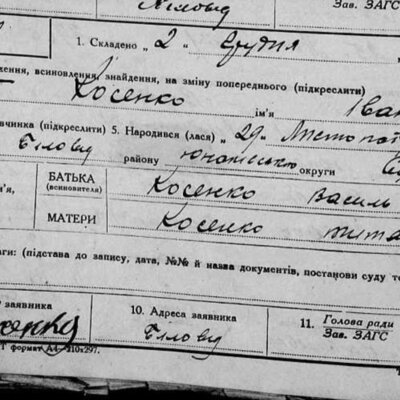 Зав. ЗАГС
1. Складено „ 2 " Грудня
ення, всиновлення, знайдення, на зміну попереднього (підкреслити)
Косенко ім'я Іван
вчинка (підкреслити) 5. Народився (лася) „ 29 " Листопа
Білову району округи
м'я, БАТЬКА (всиновителя) Косенко Василь
МАТЕРИ Косенко
аги: (підстава до запису, дата, №№ й назва документів, постанови суду т
заявника 10. Адреса заявника 11. Голова ради
Зав. ЗАГС
Білову
Т формат А4—210х297.